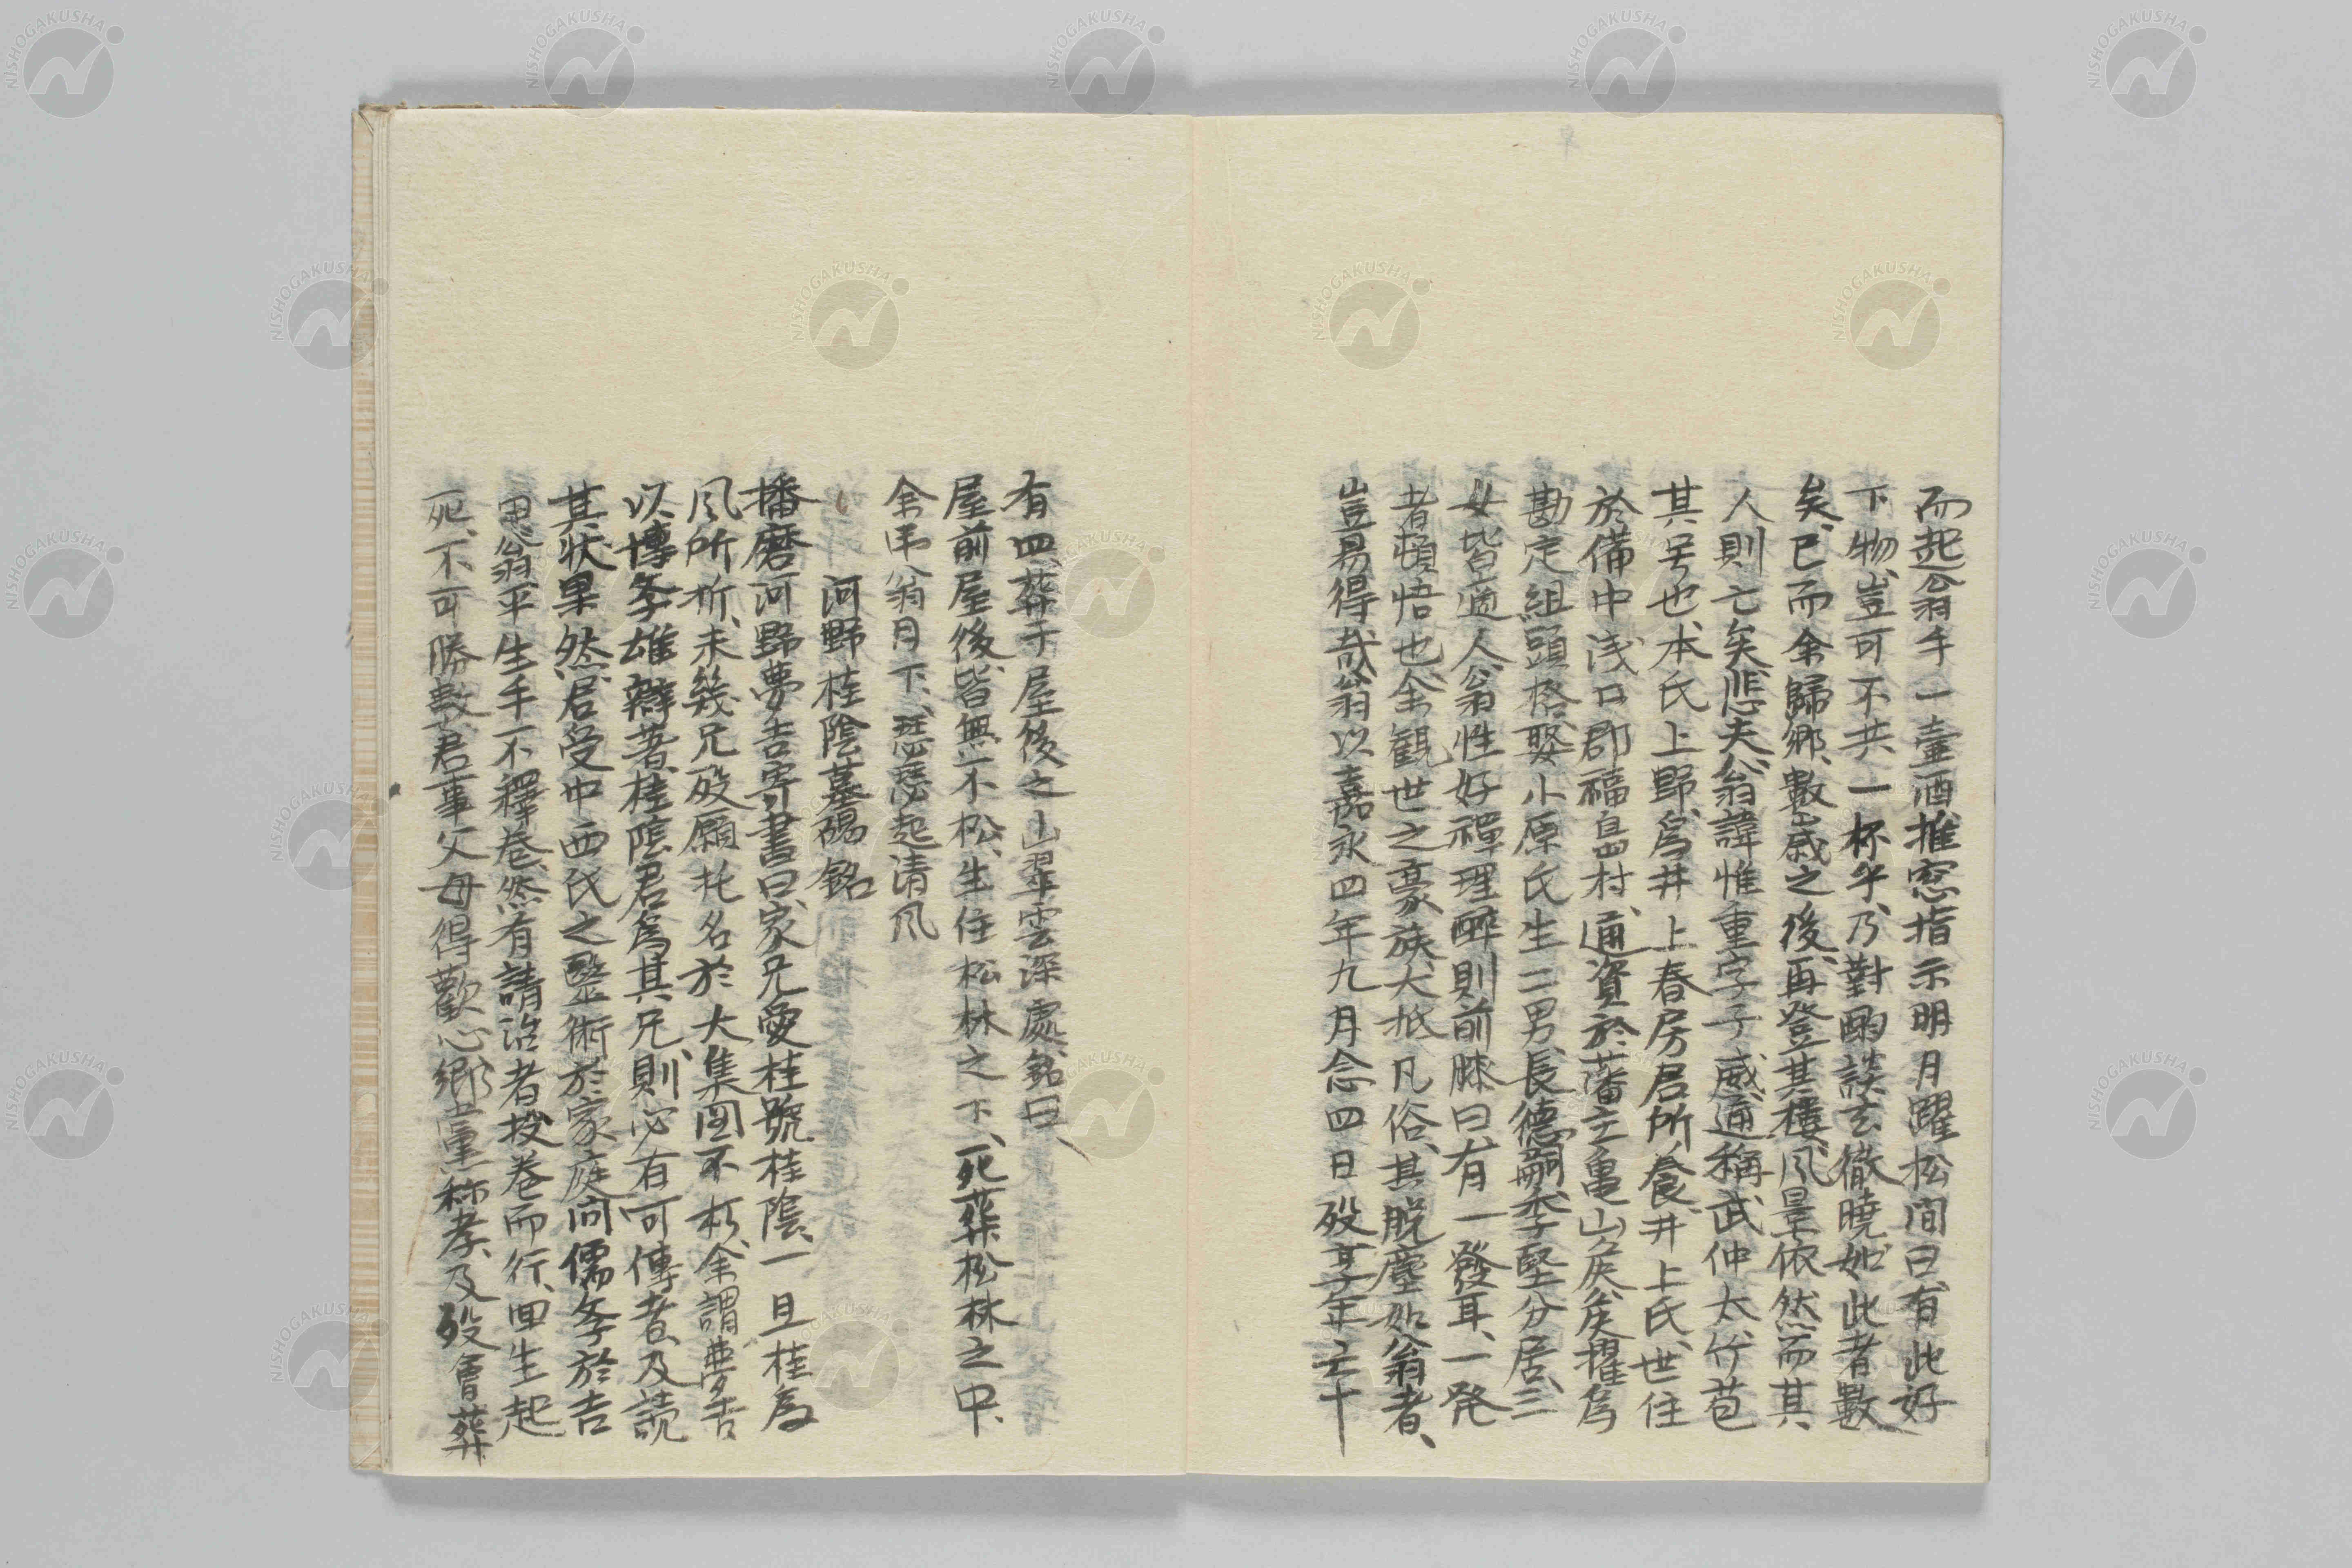 而起翁手一壷酒推窓指示明月躍松間曰有此好
下物豈可不共一杯乎乃對酌談玄徹曉如此者數
矣已而余歸郷數歳之後再登其樓風景依然而其
人則亡矣悲夫翁諱惟重字子威通稱武仲太竹苞
其号也本氏上野爲井上春房君所養井上氏世住
於備中浅口郡福島村通資於藩主亀山矦矦擢爲
勘定組頭格娶小原氏生二男長德嗣季堅分居三
女皆適人翁性好禪理酔則前膝曰有一發耳一発
者頓悟也余観世之豪族大抵凡俗其脱塵如翁者、
豈易得哉翁以嘉永四年九月念四日殁享年六十
有四葬于屋後之山翠雲深處銘曰
屋前屋後皆無不松生住松林之下、死葬松林之中、
余弔翁月下瑟瑟起清風
河野桂陰墓碣銘
播磨河野夢吉寄書曰家兄愛桂號桂陰一旦桂為
風所折未幾兄殁願托名於大集圖不朽余謂夢吉
以博学雄辯著桂陰君爲其兄則必有可傳者及読
其状果然君受中西氏之毉術於家庭问儒学於吉
田翁平生手不釋巻然有請治者投巻而行、囬生起
死、不可勝數君事父母得歡心郷黨称孝及殁會葬
NISHOGAKUSHA